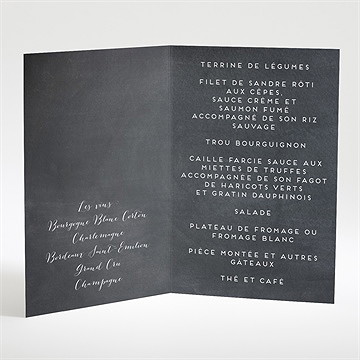 Les vins
Bourgogne Blanc Corton
Charlemagne
Bordeaux Saint-Emilion
Grand Cru
Champagne
TERRINE DE LÉGUMES
FILET DE SANDRE RÔTI
AUX CÈPES,
SAUCE CRÈME ET
SAUMON FUMÉ
ACCOMPAGNÉ DE SON RIZ
SAUVAGE
TROU BOURGUIGNON
CAILLE FARCIE SAUCE AUX
MIETTES DE TRUFFES
ACCOMPAGNÉE DE SON FAGOT
DE HARICOTS VERTS
ET GRATIN DAUPHINOIS
SALADE
PLATEAU DE FROMAGE OU
FROMAGE BLANC
PIÈCE MONTÉE ET AUTRES
GATEAUX
THÉ ET CAFÉ